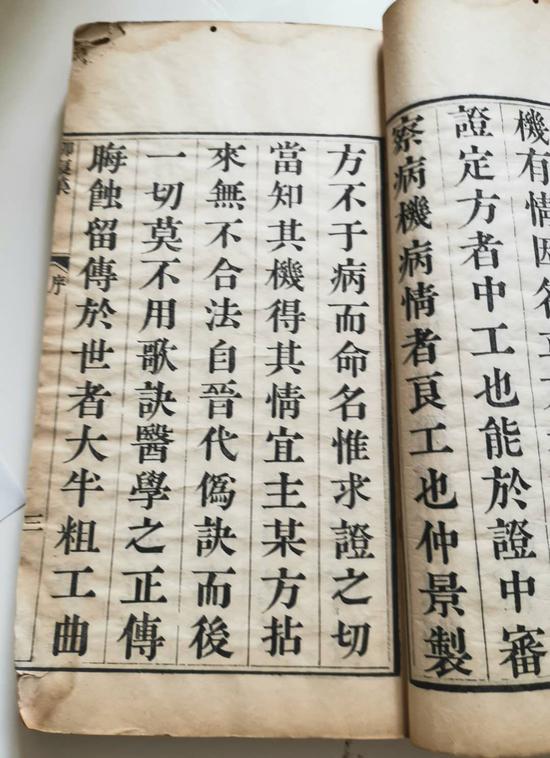 機有情因名
證定方者中工也能於證中審
察病機病情者良工也仲景製
方不于病而命名惟求證之切
當知其機得其情宜主某方拈
來無不合法自晉代僞訣而後
一切莫不用歌訣醫學之正傳
晦蝕留傳於世者大半粗工曲
序
三